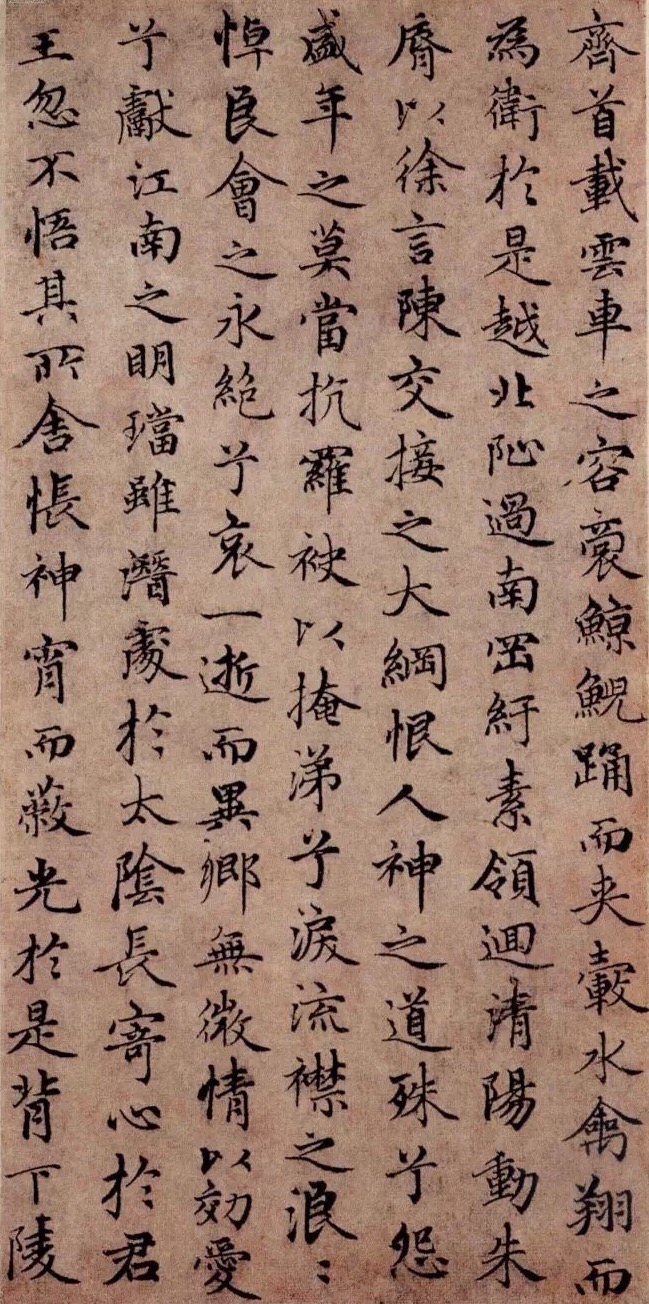 齊首載雲車之容裔鯨鯢踊而夾轂水禽翔而
為衛於是越北阯過南岡紆素領迴清陽動朱
脣以徐言陳交接之大綱恨人神之道殊兮怨
盛年之莫當抗羅袂以掩涕兮淚流襟之浪〻
悼良會之永絕兮哀一逝而異鄉無微情以効愛
兮獻江南之明璫雖潛處於太陰長寄心於君
王忽不悟其所舍悵神宵而蔽光於是背下陵